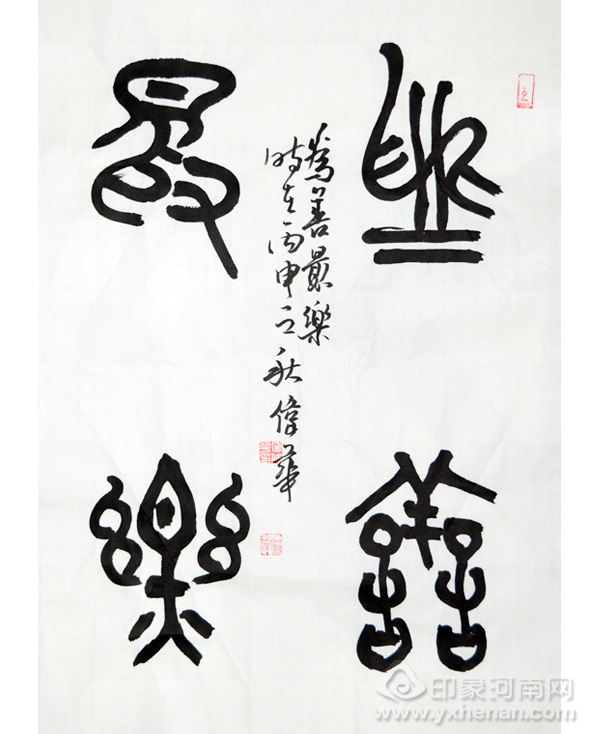 為善
最樂
為善最樂
時在丙申之秋偉華
印象河南网
www.yxhenan.com